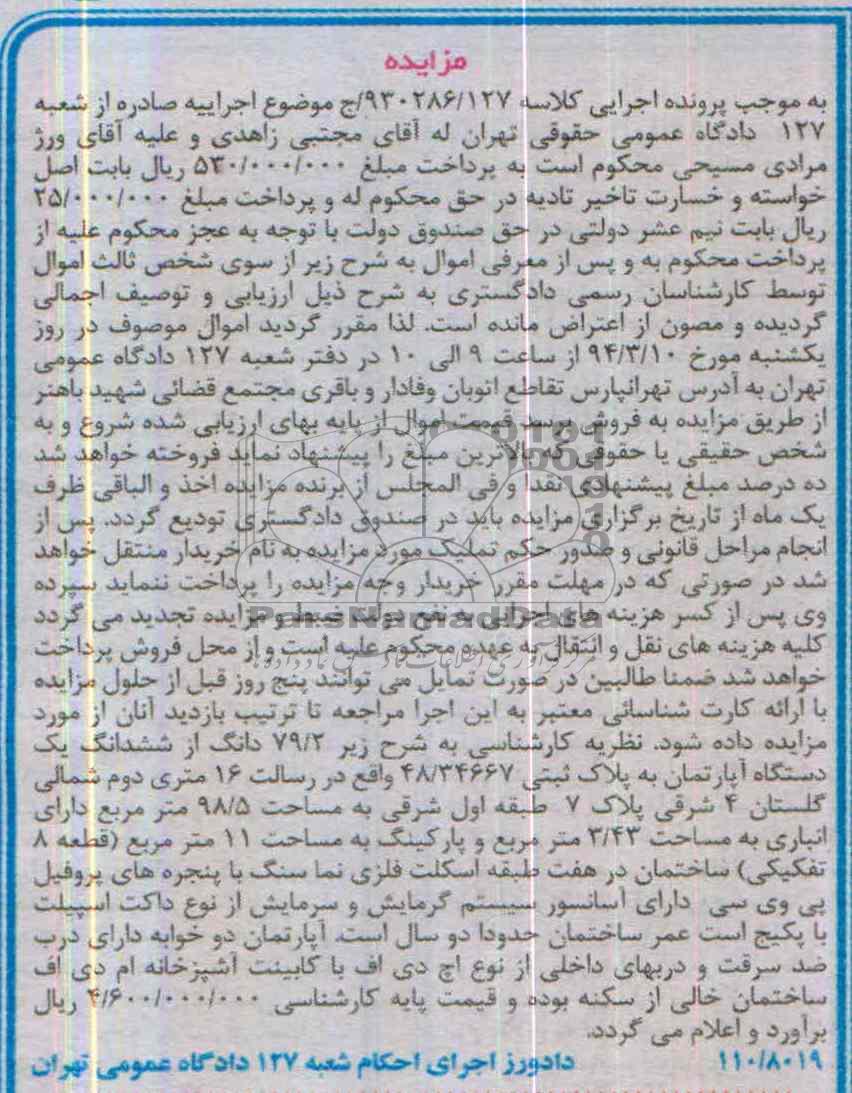 مزایده
به موجب پرونده اجرایی کلاسه ۹۳۰۲۸۶/۱۲۷/ج موضوع اجراییه صادره از شعبه
۱۲۷ دادگاه عمومی حقوقی تهران له آقای مجتبی زاهدی و علیه آقای ورژ
مرادی مسیحی محکوم است به پرداخت مبلغ ۵۳۰/۰۰۰/۰۰۰ ریال بابت اصل
خواسته و خسارت تاخیر تادیه در حق محکوم له و پرداخت مبلغ ۲۵/۰۰۰/۰۰۰
ریال بابت نیم عشر دولتی در حق صندوق دولت با توجه به عجز محکوم علیه از
پرداخت محکوم به و پس از معرفی اموال به شرح زیر از سوی شخص ثالث اموال
توسط کارشناسان رسمی دادگستری به شرح ذیل ارزیابی و توصیف اجمالی
گردیده و مصون از اعتراض مانده است. لذا مقرر گردید اموال موصوف در روز
یکشنبه مورخ ۹۴/۳/۱۰ از ساعت ۹ الی ۱۰ در دفتر شعبه ۱۲۷ دادگاه عمومی
تهران به آدرس تهرانپارس تقاطع اتوبان وفادار و باقری مجتمع قضائی شهید باهنر
از طریق مزایده به فروش برسد قیمت اموال از پایه بهای ارزیابی شده شروع و به
شخص حقیقی یا حقوقی که بالاترین مبلغ را پیشنهاد نماید فروخته خواهد شد
ده درصد مبلغ پیشنهادی نقدا و فی المجلس از برنده مزایده اخذ و الباقی ظرف
یک ماه از تاریخ برگزاری مزایده باید در صندوق دادگستری تودیع گردد. پس از
انجام مراحل قانونی و صدور حکم تملیک مورد مزایده به نام خریدار منتقل خواهد
شد در صورتی که در مهلت مقرر خریدار وجه مزایده را پرداخت ننماید سپرده
وی پس از کسر هزینه های اجرایی به نفع دولت ضبط و مزایده تجدید می گردد
ParsNamadData
کلیه هزینه های نقل و انتقال به عهده محکوم علیه است و از محل فروش پرداخت
خواهد شد ضمنا طالبین در صورت تمایل می توانند پنج روز قبل از حلول مزایده
با ارائه کارت شناسائی معتبر به این اجرا مراجعه تا ترتیب بازدید آنان از مورد
مزایده داده شود. نظریه کارشناسی به شرح زیر ۷۹/۲ دانگ از ششدانگ یک
دستگاه آپارتمان به پلاک ثبتی ۴۸/۳۴۶۶۷ واقع در رسالت ۱۶ متری دوم شمالی
گلستان ۴ شرقی پلاک ۷ طبقه اول شرقی به مساحت ۹۸/۵ متر مربع دارای
انباری به مساحت ۳/۴۳ متر مربع و پارکینگ به مساحت ۱۱ متر مربع (قطعه ۸
تفکیکی) ساختمان در هفت طبقه اسکلت فلزی نما سنگ با پنجره های پروفیل
پی وی سی دارای آسانسور سیستم گرمایش و سرمایش از نوع داکت اسپیلت
با پکیج است عمر ساختمان حدودا دو سال است. آپارتمان دو خوابه دارای درب
ضد سرقت و دربهای داخلی از نوع اچ دی اف با کابینت آشپزخانه ام دی اف
ساختمان خالی از سکنه بوده و قیمت پایه کارشناسی ۴/۶۰۰/۰۰۰/۰۰۰ ریال
برآورد و اعلام می گردد.
۱۱۰/۸۰۱۹ دادورز اجرای احکام شعبه ۱۲۷ دادگاه عمومی تهران